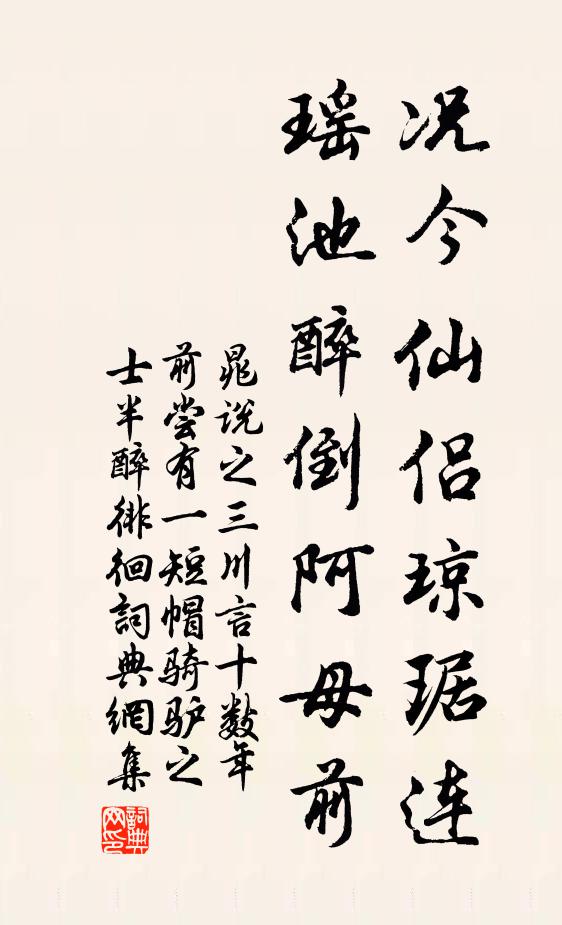 况今仙侣琼琚连
瑶池醉倒阿母前
晁说之三川言十数年
前尝有一短帽骑驴之
士半醉徘徊詞典網集
詞典
网印